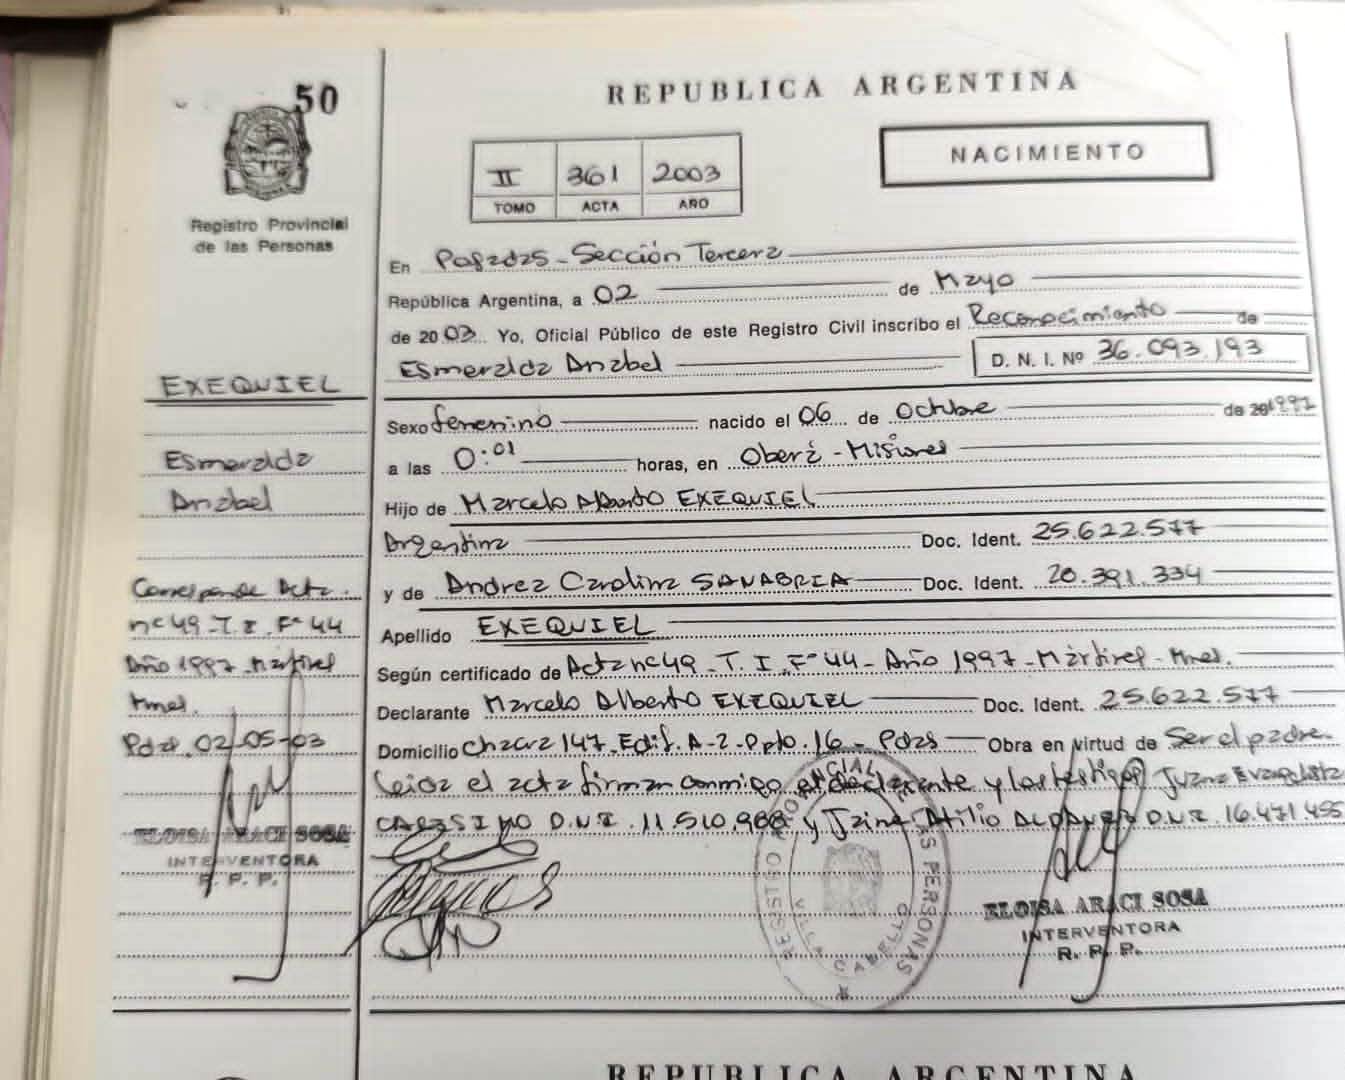 50
Registro Provincial
de las Personas
REPUBLICA ARGENTINA
NACIMIENTO
II 361 2003
TOMO ACTA AÑO
En Posadas - Sección Tercera
República Argentina, a 02 de Mayo
de 2003. Yo, Oficial Público de este Registro Civil inscribo el Reconocimiento de
Esmeralda Anabel D. N. I. Nº 36.093.193
Sexo femenino nacido el 06 de Octubre de 1997
a las 0:01 horas, en Oberá - Misiones
Hijo de Marcelo Alberto EXEQUIEL
Argentina Doc. Ident. 25.622.577
y de Andrea Carolina SANABRIA Doc. Ident. 20.391.334
Apellido EXEQUIEL
Según certificado de Acta nº 49 - T. I - Fº 44 - Año 1997 - Mártires - Mnes.
Declarante Marcelo Alberto EXEQUIEL Doc. Ident. 25.622.577
Domicilio Chacra 147 - Edif. A-2 - Dpto. 16 - Pdas Obra en virtud de Ser el padre.
Leida el acta firman conmigo el declarante y los testigos Juana Evangelista
D.N.I. 11.510.988 y Jaime Atilio D.N.I. 16.471.455
EXEQUIEL
Esmeralda
Anabel
Corresponde Acta
nº 49 - T. I. Fº 44
Año 1997 - Mártires
Mnes.
Pdas. 02-05-03
ELOISA ARACI SOSA
INTERVENTORA
R. P. P.
REGISTRO PROVINCIAL DE LAS PERSONAS
VILLA CABELLO
ELOISA ARACI SOSA
INTERVENTORA
R. P. P.
REPUBLICA ARGENTINA